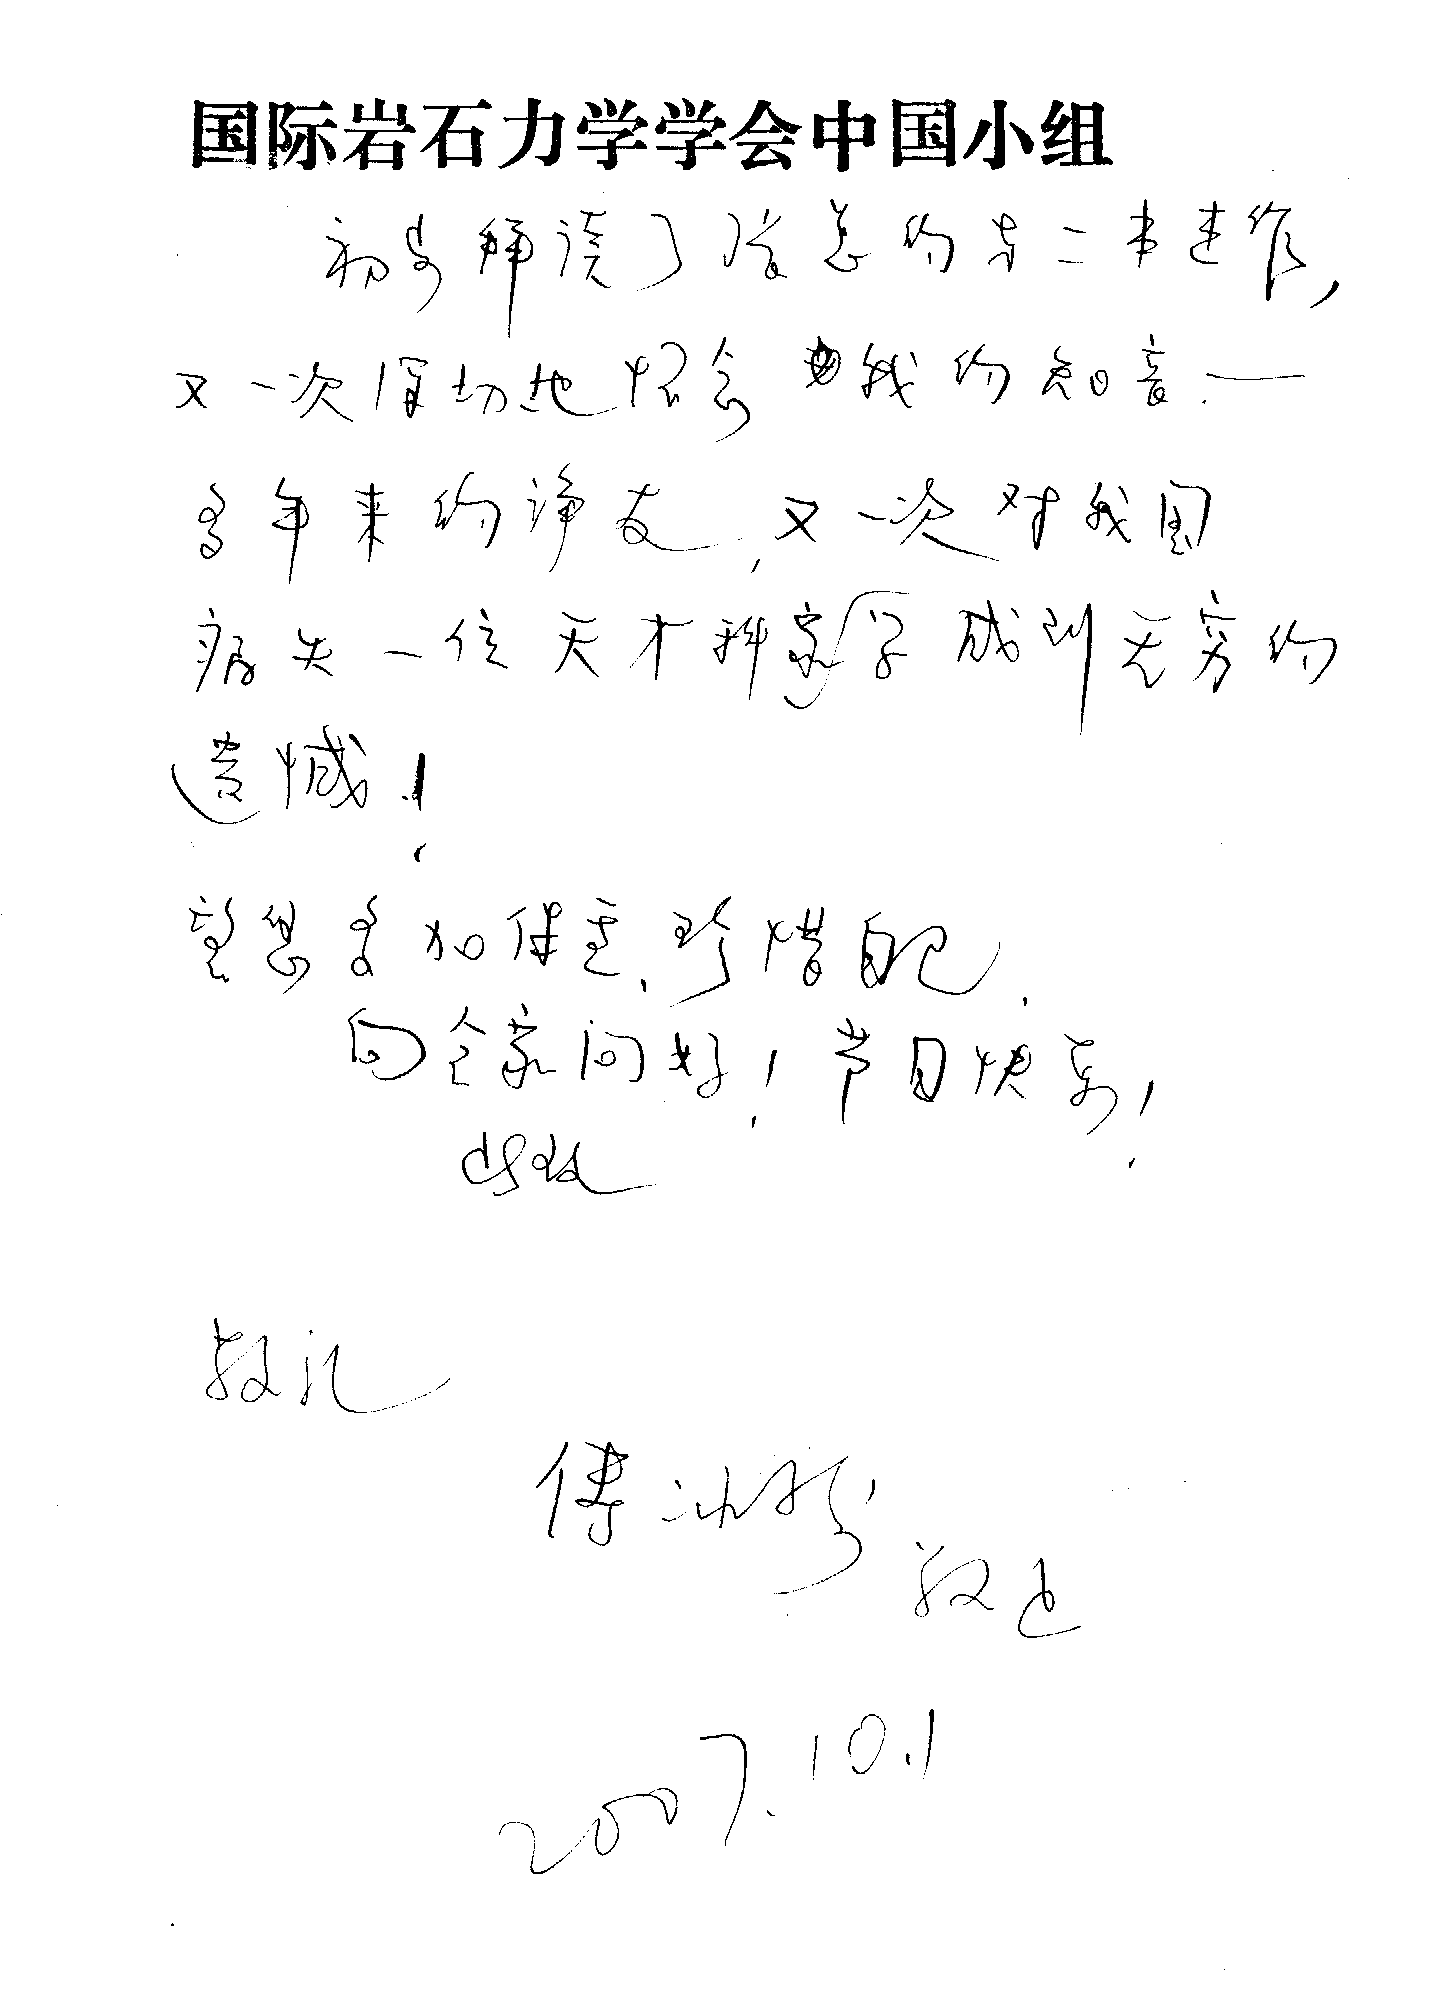 国际岩石力学学会中国小组
初步拜读了潘总的有二本述作，
又一次深切地怀念我的知音——
多年来的诤友，又一次对我国
痛失一位天才科学家感到无穷的
遗憾！
望您多加保重，珍惜自己，
向全家问好！节日快乐！
此致
敬礼
傅冰骏
敬上
2007.10.1